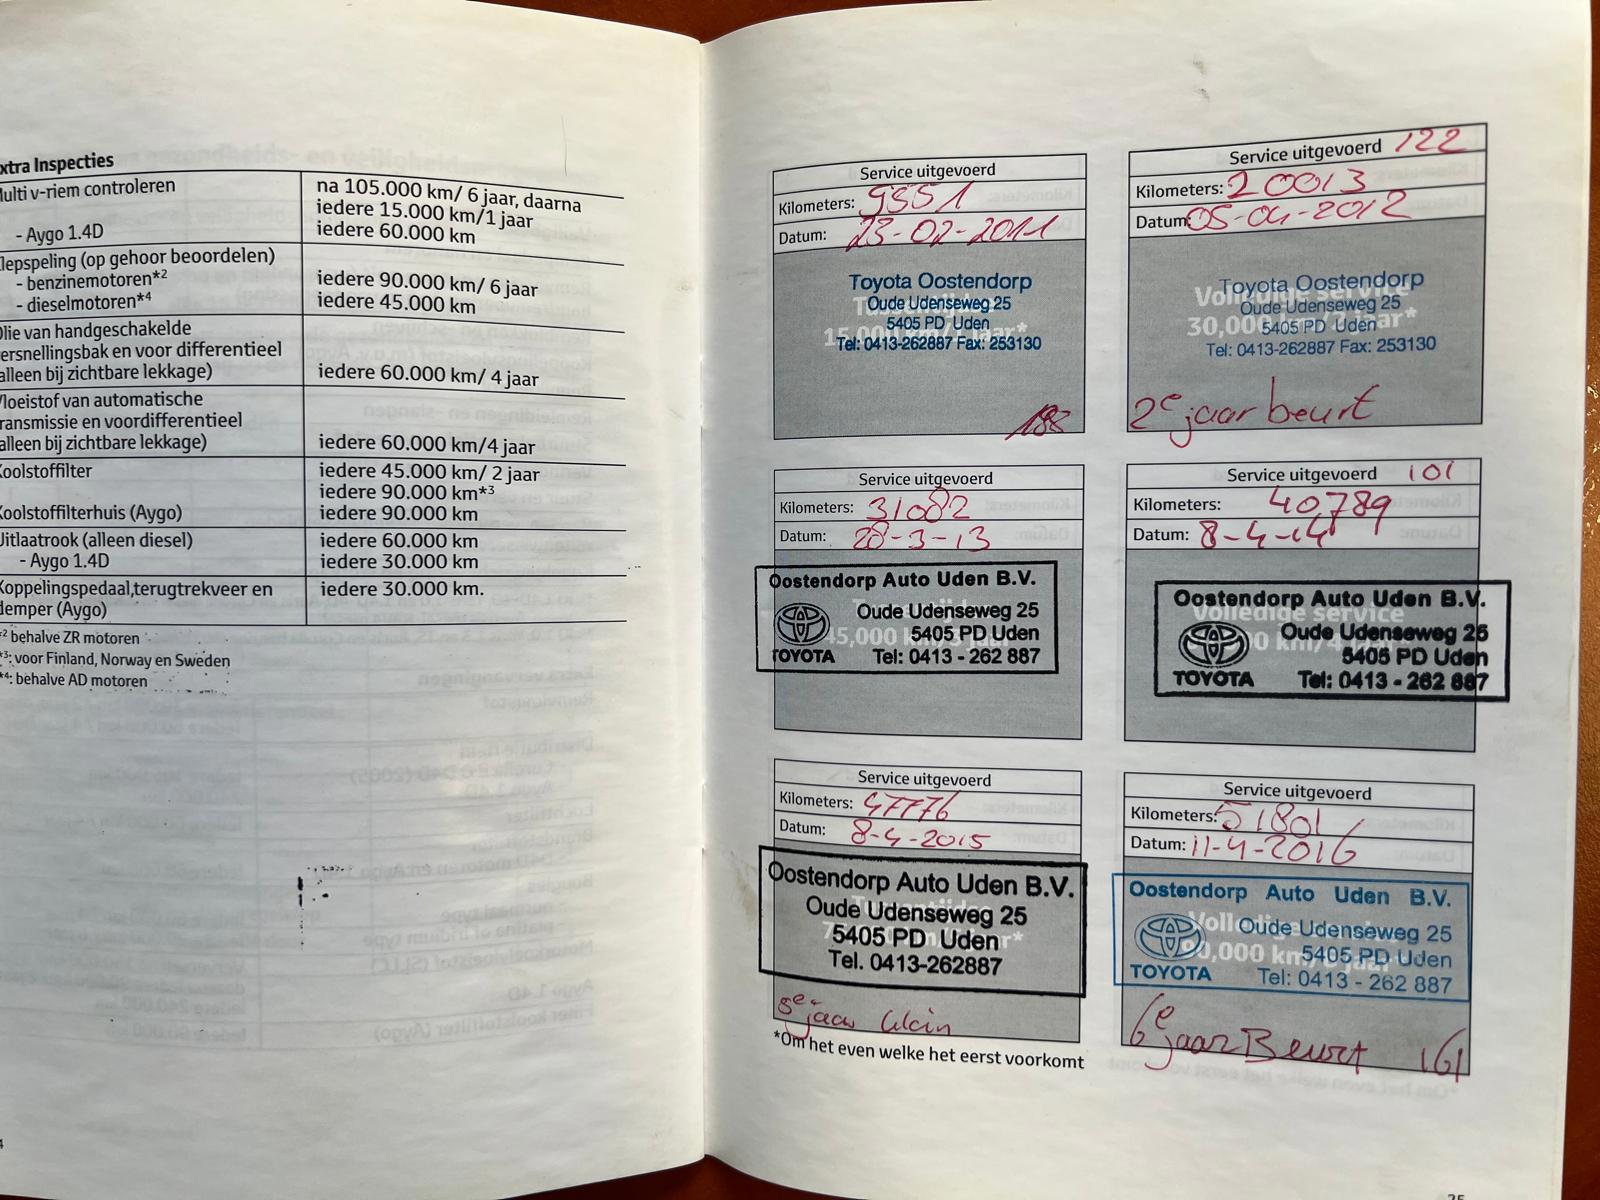 xtra Inspecties
ulti v-riem controleren
na 105.000 km/ 6 jaar, daarna
iedere 15.000 km/1 jaar
- Aygo 1.4D
iedere 60.000 km
lepspeling (op gehoor beoordelen)
- benzinemotoren*2
iedere 90.000 km/ 6 jaar
- dieselmotoren*4
iedere 45.000 km
Olie van handgeschakelde
ersnellingsbak en voor differentieel
alleen bij zichtbare lekkage)
iedere 60.000 km/ 4 jaar
Vloeistof van automatische
transmissie en voordifferentieel
alleen bij zichtbare lekkage)
iedere 60.000 km/4 jaar
Koolstoffilter
iedere 45.000 km/ 2 jaar
iedere 90.000 km*3
Koolstoffilterhuis (Aygo)
iedere 90.000 km
Uitlaatrook (alleen diesel)
iedere 60.000 km
- Aygo 1.4D
iedere 30.000 km
Koppelingspedaal,terugtrekveer en
demper (Aygo)
iedere 30.000 km.
*2 behalve ZR motoren
*3: voor Finland, Norway en Sweden
*4: behalve AD motoren
Service uitgevoerd
Kilometers: 9551
Datum: 23-02-2011
Toyota Oostendorp
Oude Udenseweg 25
5405 PD Uden
15,000 km/1 jaar*
Tel: 0413-262887 Fax: 253130
188
Service uitgevoerd 122
Kilometers: 20013
Datum: 05-04-2012
Toyota Oostendorp
Volledige service
Oude Udenseweg 25
30,000 km/2 jaar*
5405 PD Uden
Tel: 0413-262887 Fax: 253130
2e jaar beurt
Service uitgevoerd
Kilometers: 31082
Datum: 28-3-13
Oostendorp Auto Uden B.V.
Oude Udenseweg 25
5405 PD Uden
TOYOTA Tel: 0413 - 262 887
Service uitgevoerd 101
Kilometers: 40789
Datum: 8-4-14
Oostendorp Auto Uden B.V.
Volledige service
Oude Udenseweg 25
5405 PD Uden
TOYOTA Tel: 0413 - 262 887
Service uitgevoerd
Kilometers: 47776
Datum: 8-4-2015
Oostendorp Auto Uden B.V.
Oude Udenseweg 25
5405 PD Uden
Tel. 0413-262887
5e jaar klein
Service uitgevoerd
Kilometers: 51801
Datum: 11-4-2016
Oostendorp Auto Uden B.V.
Oude Udenseweg 25
5405 PD Uden
TOYOTA Tel: 0413 - 262 887
6e jaar Beurt 161
*Om het even welke het eerst voorkomt